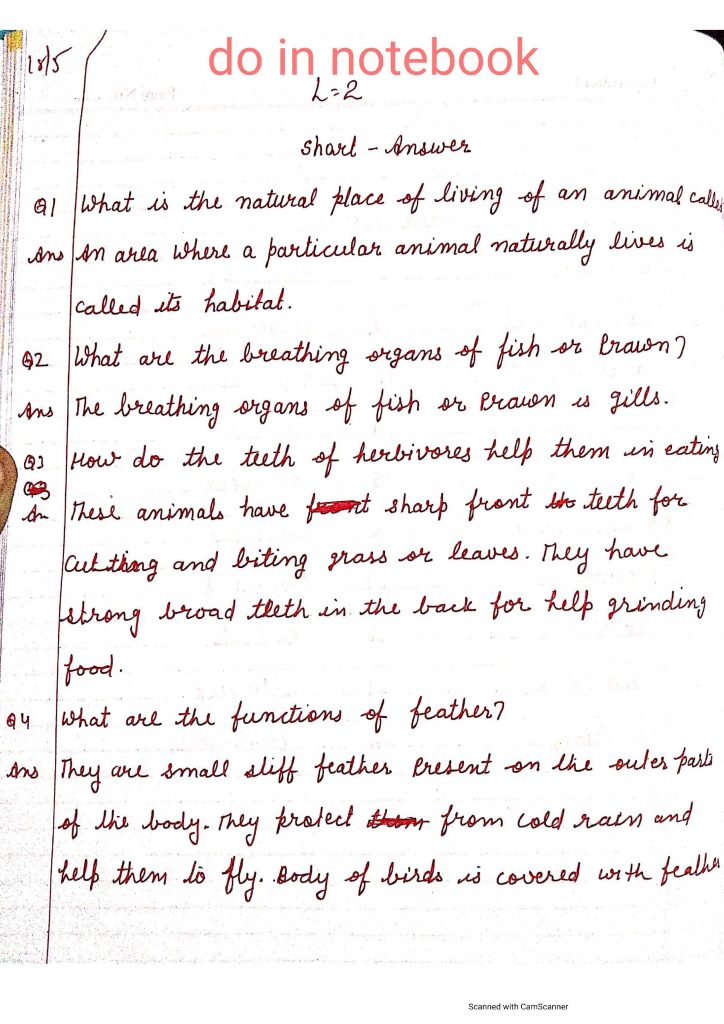 do in notebook
18/5
L=2
Short - Answer
Q1 What is the natural place of living of an animal called
Ans An area where a particular animal naturally lives is
called its habitat.
Q2 What are the breathing organs of fish or Prawn?
Ans The breathing organs of fish or Prawn is gills.
Q3 How do the teeth of herbivores help them in eating
Q3
An These animals have front sharp front th teeth for
Cutthing and biting grass or leaves. They have
strong broad teeth in the back for help grinding
food.
Q4 What are the functions of feather?
Ans They are small stiff feather Present on the outer parts
of the body. They protect them from cold rain and
help them to fly. Body of birds is covered with feather
Scanned with CamScanner